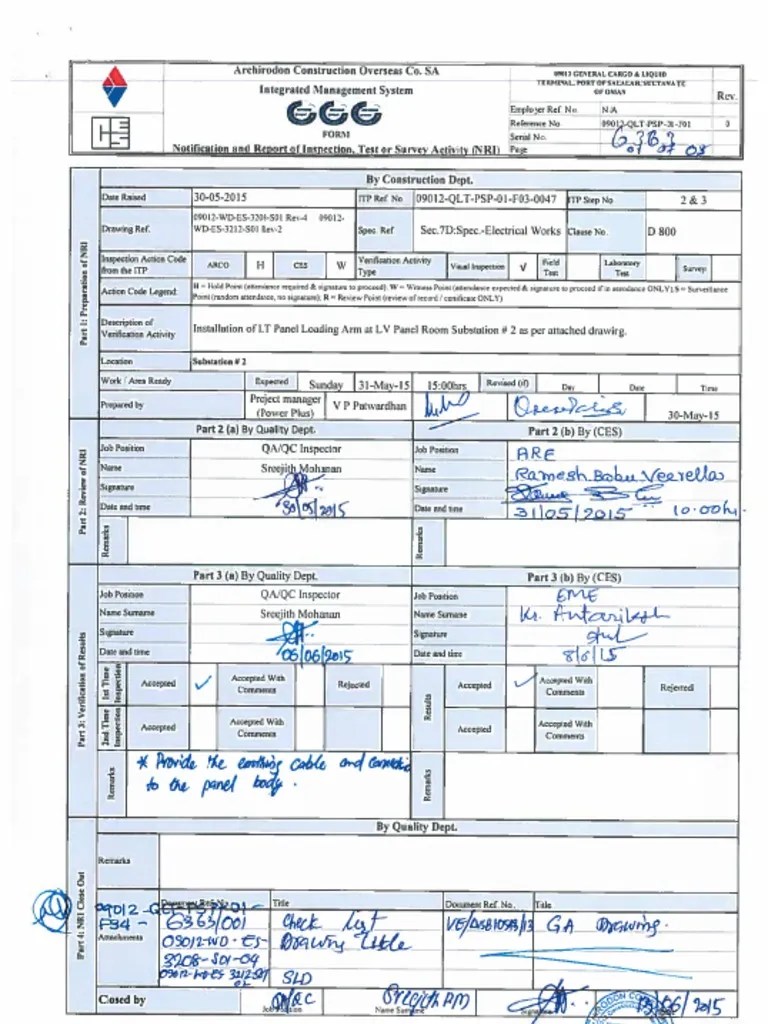 Archirodon Construction Overseas Co. SA
Integrated Management System
FORM
Notification and Report of Inspection, Test or Survey Activity (NRI)
09012 GENERAL CARGO & LIQUID
TERMINAL, PORT OF SALALAH, SULTANATE
OF OMAN
Rev.
Employer Ref. No. N/A
Reference No 09012-QLT-PSP-31-J01 0
Serial No. 6363
Page 01 of 03
By Construction Dept.
Part 1: Preparation of NRI
Date Raised 30-05-2015 ITP Ref No 09012-QLT-PSP-01-F03-0047 ITP Step No 2 & 3
Drawing Ref. 09012-WD-ES-3208-S01 Rev-4 09012-
WD-ES-3212-S01 Rev-2 Spec. Ref Sec.7D:Spec.-Electrical Works Clause No. D 800
Inspection Action Code from the ITP ARCO H CES W Verification Activity Type Visual Inspection √ Field Test Laboratory Test Survey
Action Code Legend: H = Hold Point (attendence required & signature to proceed). W = Witness Point (attendence expected & signature to proceed if in attendance ONLY); S = Surveillance
Point (random attendance, no signature); R = Review Point (review of record / certificate ONLY)
Description of Verification Activity Installation of LT Panel Loading Arm at LV Panel Room Substation # 2 as per attached drawing.
Location Substation # 2
Work / Area Ready Expected Sunday 31-May-15 15:00hrs Revised (if) Day Date Time
Prepared by Project manager (Power Plus) V P Patwardhan 30-May-15
Part 2: Review of NRI
Part 2 (a) By Quality Dept. Part 2 (b) By (CES)
Job Position QA/QC Inspector Job Position ARE
Name Sreejith Mohanan Name Ramesh Babu Veerella
Signature Signature
Date and time 30/05/2015 Date and time 31/05/2015 10.00hr.
Remarks Remarks
Part 3: Verification of Results
Part 3 (a) By Quality Dept. Part 3 (b) By (CES)
Job Position QA/QC Inspector Job Position EME
Name Surname Sreejith Mohanan Name Surname Kr. Antariksh
Signature Signature
Date and time 06/06/2015 Date and time 8/6/15
1st Time Inspection Accepted ✓ Accepted With Comments Rejected Results Accepted ✓ Accepted With Comments Rejected
2nd Time Inspection Accepted Accepted With Comments Accepted Accepted With Comments
Remarks * Provide the earthing cable and connected
to the panel body.
Remarks
Part 4: NRI Close Out
By Quality Dept.
Remarks
Attachments
Document Ref. No. Title Document Ref. No. Title
F34 -
6363/001 Check list VE/DSB1058/13 GA Drawing.
09012-WD-ES- Drawing
3208-S01-04
09012-WD-ES 3212-S01
02 SLD
Closed by QA/QC Sreejith PM 13/06/2015
Job Position Name Surname Signature